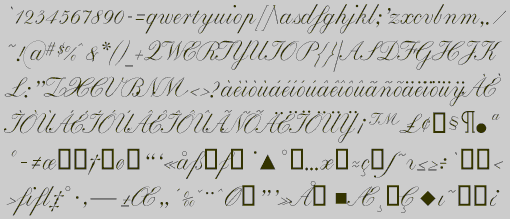 `1234567890-=qwertyuiop[]\asdfghjkl;'zxcvbnm,./
~!@#$%^&*()_+QWERTYUIOP{}|ASDFGHJK
L:"ZXCVBNM<>?àèìòùáéíóúâêîôûãñõäëïöüÿÀÈ
ÌÒÙÁÉÍÓÚÂÊÎÔÛÃÑÕÄËÏÖÜŸ¡™£¢§¶●ª
º-≠œ†ø“‘«åßƒ˙▲°…x≈ç∫˜≤≥÷`<
>fifl‡°·‚—±Œ„´ˇ¨ˆØ”’»Å■Æ¸Ç◆ı˜¿